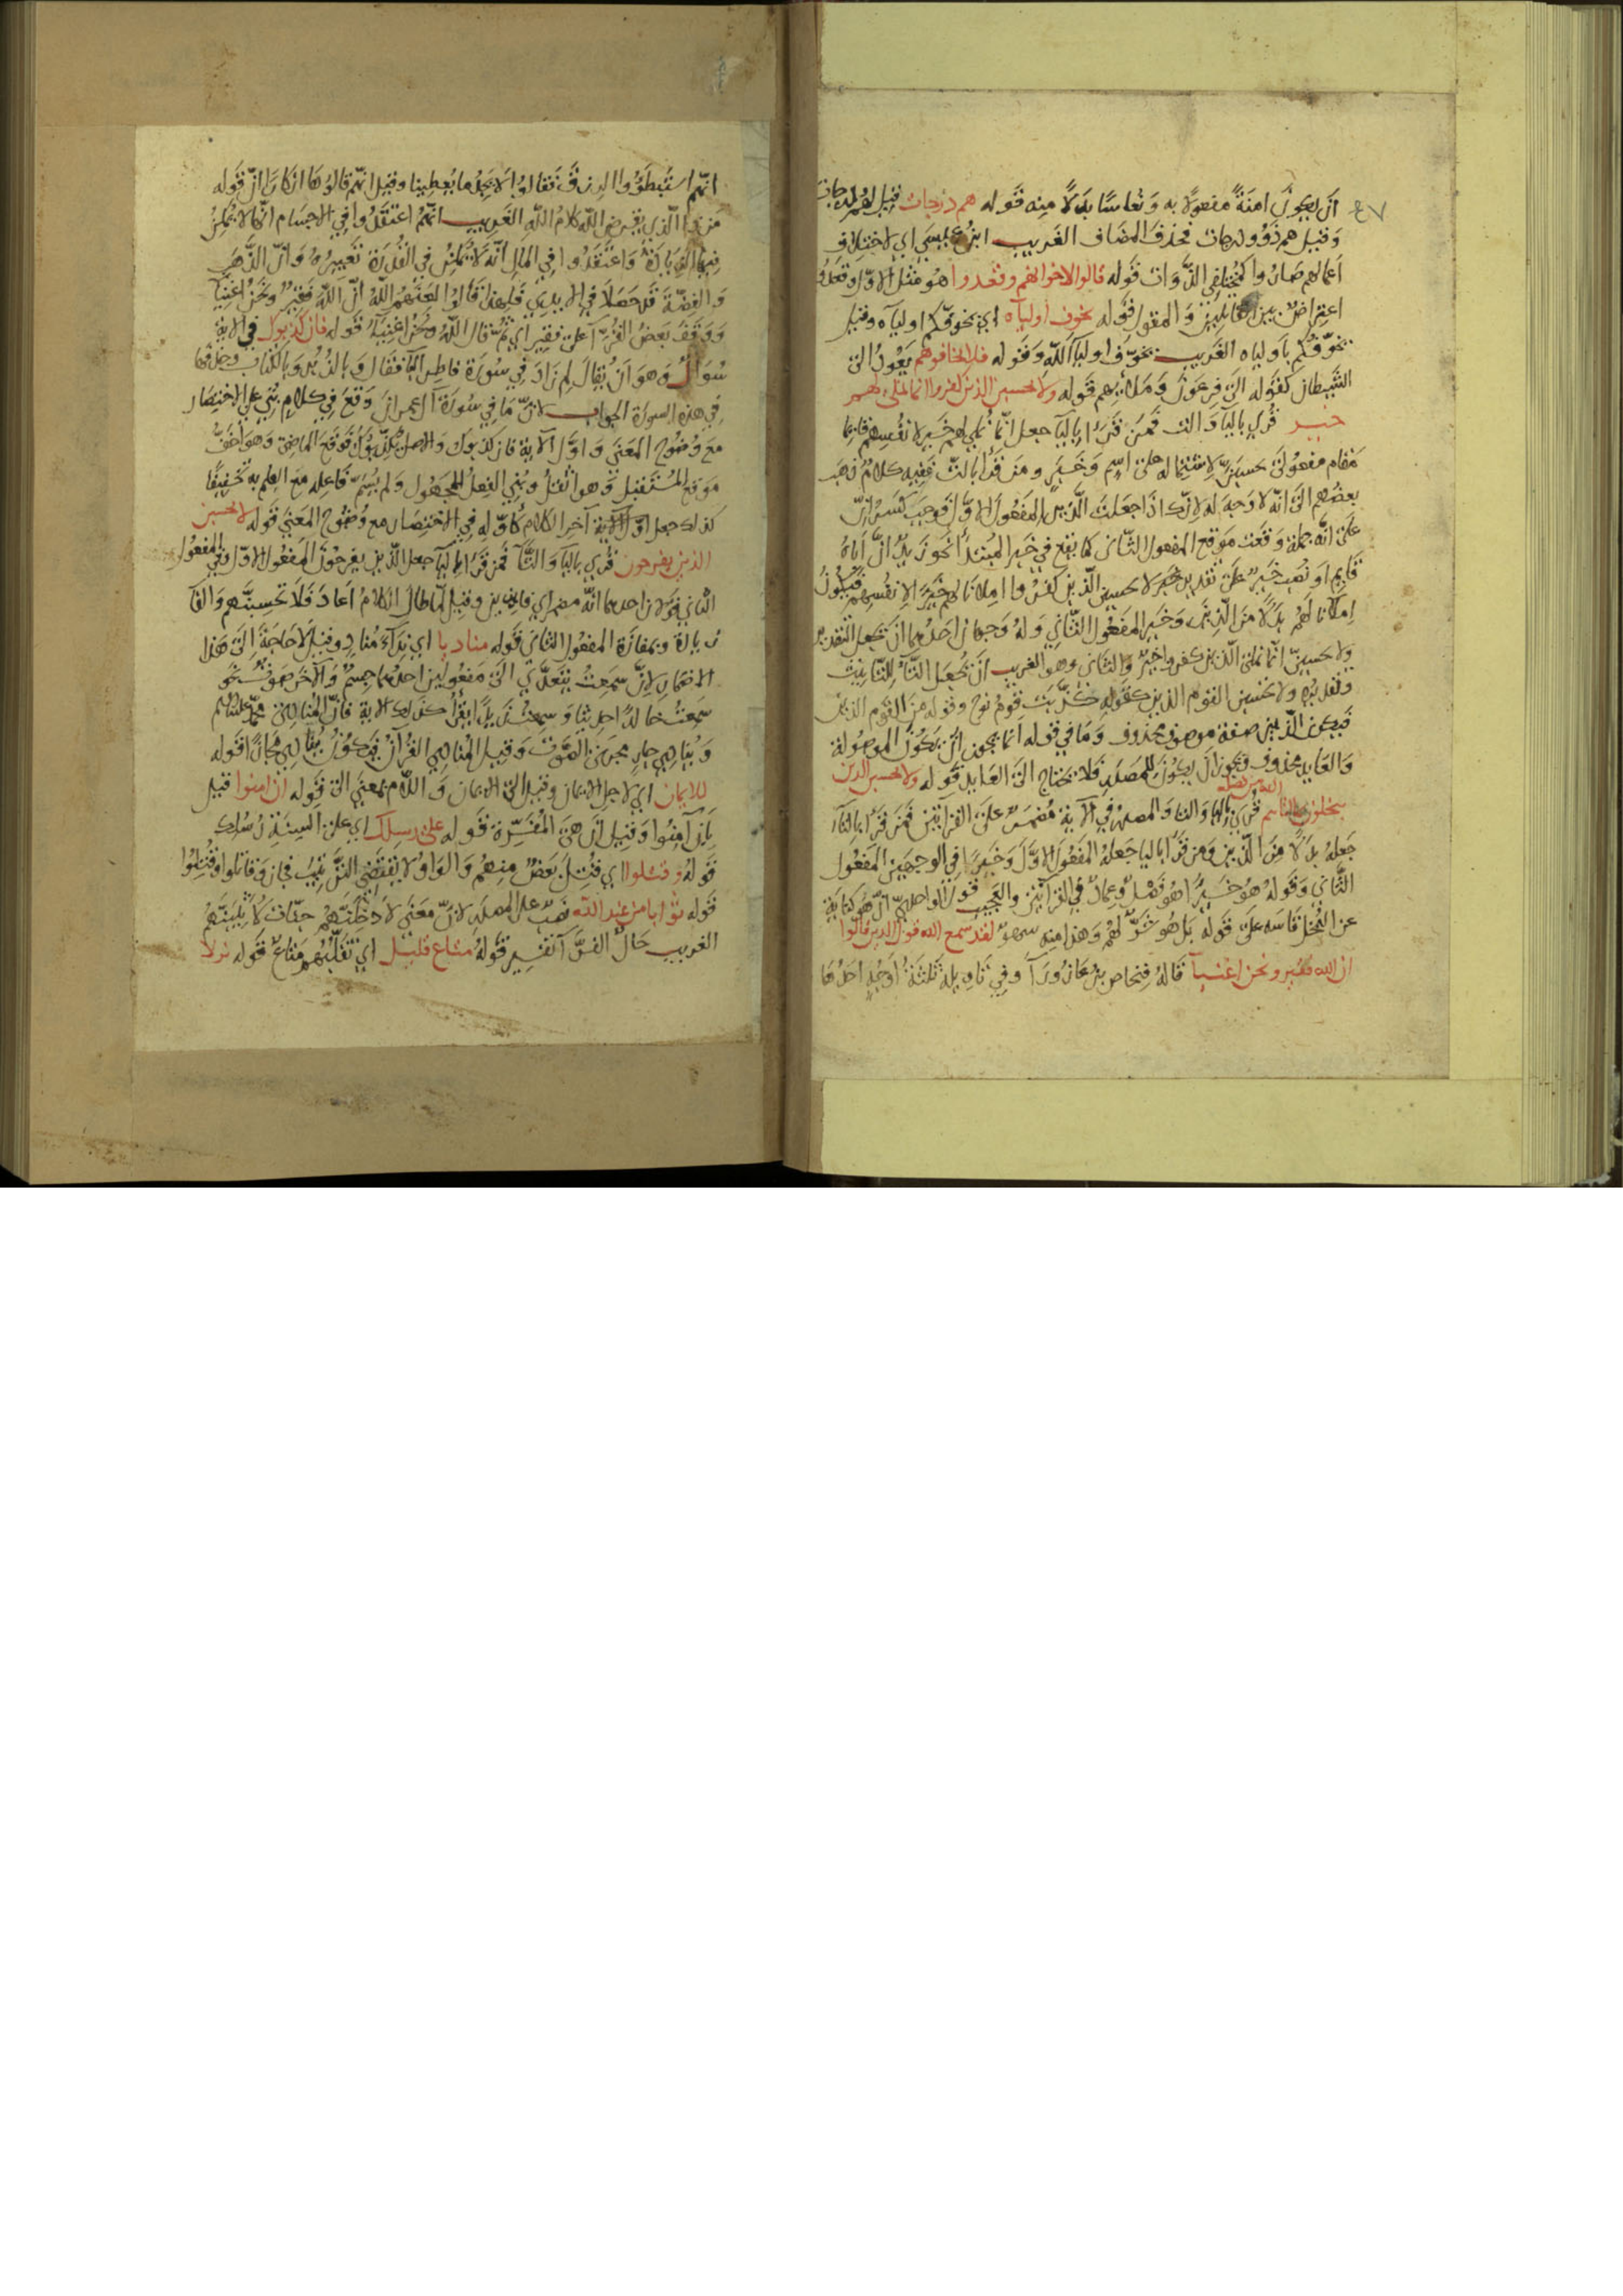 ٤٧
أن يكون امنةً مفعولا به ونعاسًا بدلاً منه قوله هم درجات قيل لهم درجات
وقيل هم ذوو درجات فحذف المضاف الغريب ابن عيسى اي لاختلاف
اعمالهم صاروا كمختلفي الذوات قوله قالوا لاخوانهم وقعدوا هو مثل الاول وقعدوا
اعتراض بين القايلين والمقول قوله يخوف اولياه اي يخوفكم اولياه وقيل
يخوفكم باولياه الغريب يخوف اوليا الله وقوله فلا تخافوهم يعود الى
الشيطان كقوله الى فرعون وملائهم قوله ولا تحسبن الذين كفروا انما نملي لهم
خير قرئ باليآ والتا فمن قرا باليآ جعل انما نملي لهم خير لانفسهم قايما
مقام مفعولى حسبت لاشتماله على اسم وخبر ومن قرأ بالتا ففيه كلام ذهب
بعضهم الى انه لا وجه له لانك اذا جعلت الذين المفعول الاول فوجب كسر ان
على انه جملة وقعت موقع المفعول الثانى كما يقع في خبر المبتدأ نحو زيد ان اباه
قايم او نصب خير على تقدير لا تحسبن الذين كفروا املانا لهم خيرا لانفسهم فيكون
املانا لهم بدلا من الذين وخير المفعول الثاني وله وجهان احدهما ان تجعل التقدير
ولا تحسبن انما نملى الذين كفروا خير والثانى وهو الغريب ان تجعل التآ للتانيث
وتقديره ولا تحسبن القوم الذين كقوله كذبت قوم نوح وقوله من القوم الذين
فيكون الذين صفة موصوف محذوف وما في قوله انما يجوز ان تكون الموصولة
والعايد محذوف ويجوز ان يكون للمصدر فلا يحتاج الى العايد قوله ولا تحسبن الذين
يبخلون بما اتاهم الله من فضله قرئ باليا والتا والمصدر في الاية مضمر على القرايتين فمن قرا بالتآ
جعله بدلا من الذين ومن قرأ باليا جعله المفعول الاول وخيرا في الوجهين المفعول
الثاني وقوله هو خيرا هو فصل وعماد في القرآتين والعجيب قول الواحدي ان هو كناية
عن البخل قاسه على قوله بل هو شر لهم وهذا منه سهو لقد سمع الله قول الذين قالوا
ان الله فقير ونحن اغنيآ قاله فنحاص بن عازوراآ وفي تاويله ثلثة أوجه احدها
انهم استبطؤوا الرزق فقالوا لا يجد ما يعطينا وقيل انهم قالوها انكارا ان قوله
من ذا الذي يقرض الله كلام الله الغريب انهم اعتقدوا في الاجسام انها لا يمكن
فيها الزيادة واعتقدوا في المال انه لا يمكن في القدرة تغييره وان الذهب
والفضة قد حصلا في الايدي فلهذا قالوا لعنهم الله ان الله فقير ونحن اغنيآ
ووقف بعض القرآ على فقير اي ثم قال الله ونحن اغنيآ قوله فان كذبوك في الاية
سؤال وهو ان يقال لم زاد في سورة فاطر البآ فقال وبالزبر وبالكتاب وحذفها
في هذه السورة الجواب لان ما في سورة آل عمران وقع في كلام بني على الاختصار
مع وضوح المعنى واول الآية فان كذبوك والاصل يكذبوك فوقع الماضى وهو اخف
موقع المستقبل وهو اثقل وبني الفعل للمجهول ولم يسم فاعله مع العلم به تخفيفًا
كذلك جعل آخر الكلام كأوله في الاختصار مع وضوح المعنى قوله لا تحسبن
الذين يفرحون قرئ باليآ والتآ فمن قرا باليآ جعل الذين يفرحون المفعول الاول وفي المفعول
الثاني قولان احدهما انه مضمر اي فايزين وقيل لما طال الكلام اعاد فلا تحسبنهم والفا
زيادة وبمفازة المفعول الثانى قوله مناديا اي نداء مناد وقيل لا حاجة الى هذا
الاضمار لان سمعت يتعدى الى مفعولين احدهما جسم والآخر صوت نحو
سمعت خالدا حديثا وسمعت زيدا يقرأ كذلك الاية فان المنادى محمد عليه السلم
وينادي جار مجرى الصوت وقيل المنادي القرآن فيكون ينادي مجازا قوله
للايمان اي لاجل الايمان وقيل الى الايمان واللام بمعنى الى قوله ان امنوا قيل
بان آمنوا وقيل ان هى المفسرة قوله على رسلك اي على السنة رسلك
قوله وقتلوا اي قتل بعض منهم والواو لا يقتضي الترتيب فجاز وقاتلوا وقتلوا
قوله ثوابا من عند الله نصب على المصدر لان معنى لادخلنهم جنات لاثيبنهم
الغريب حال الفرآ تفسير قوله متاع قليل اي تقلبهم متاع قوله نزلا